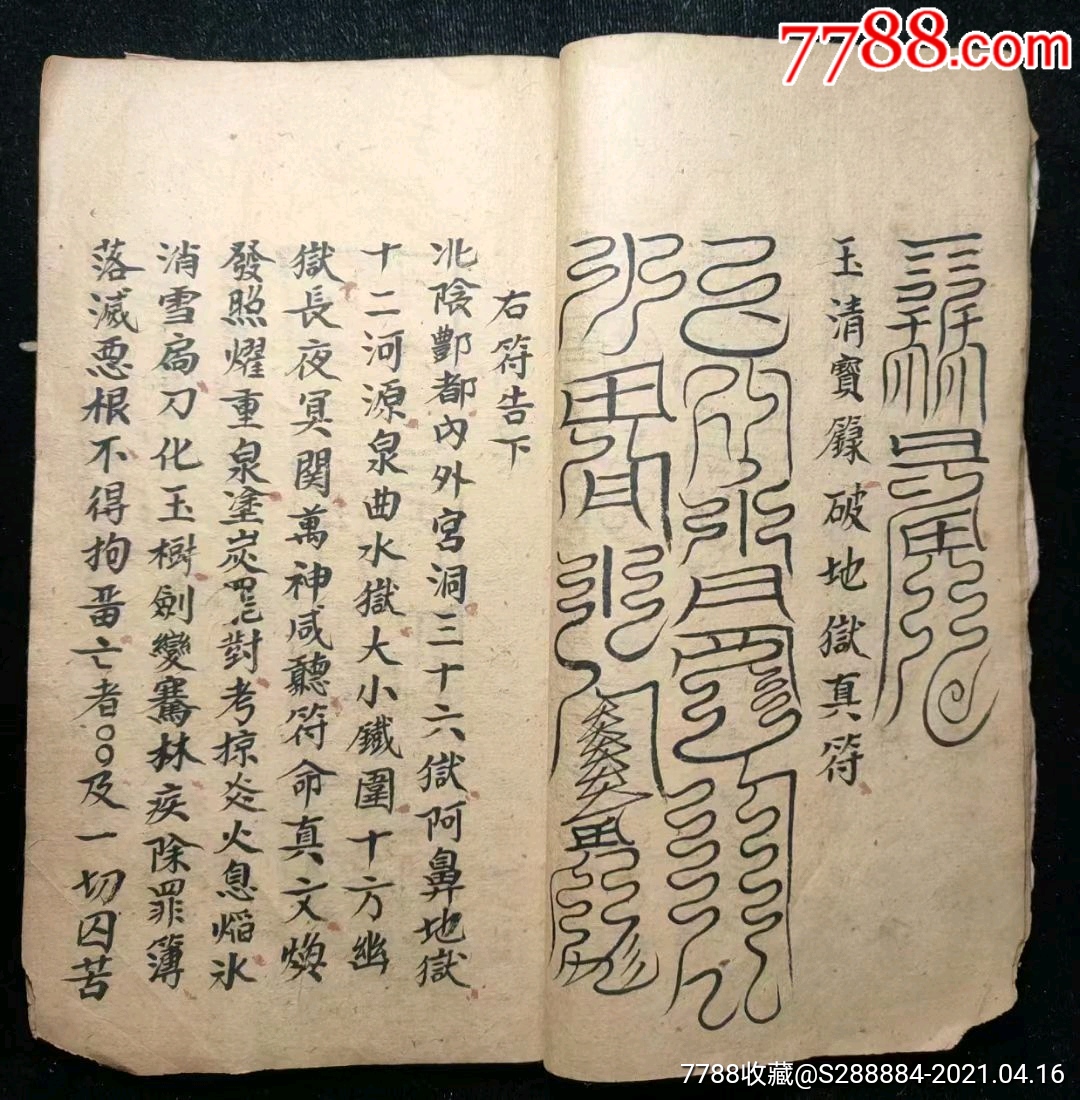 7788.com
玉清寶籙破地獄真符
右符告下
北陰酆都內外宮洞三十六獄阿鼻地獄
十二河源泉曲水獄大小鐵圍十方幽
獄長夜冥関萬神咸聽符命真文煥
發照耀重泉塗炭罷對考掠炎火息熖氷
消雪扃刀化玉樹劍變騫林疾除罪簿
落滅惡根不得拘畱亡者〇〇及一切囚苦
7788收藏@S288884-2021.04.16